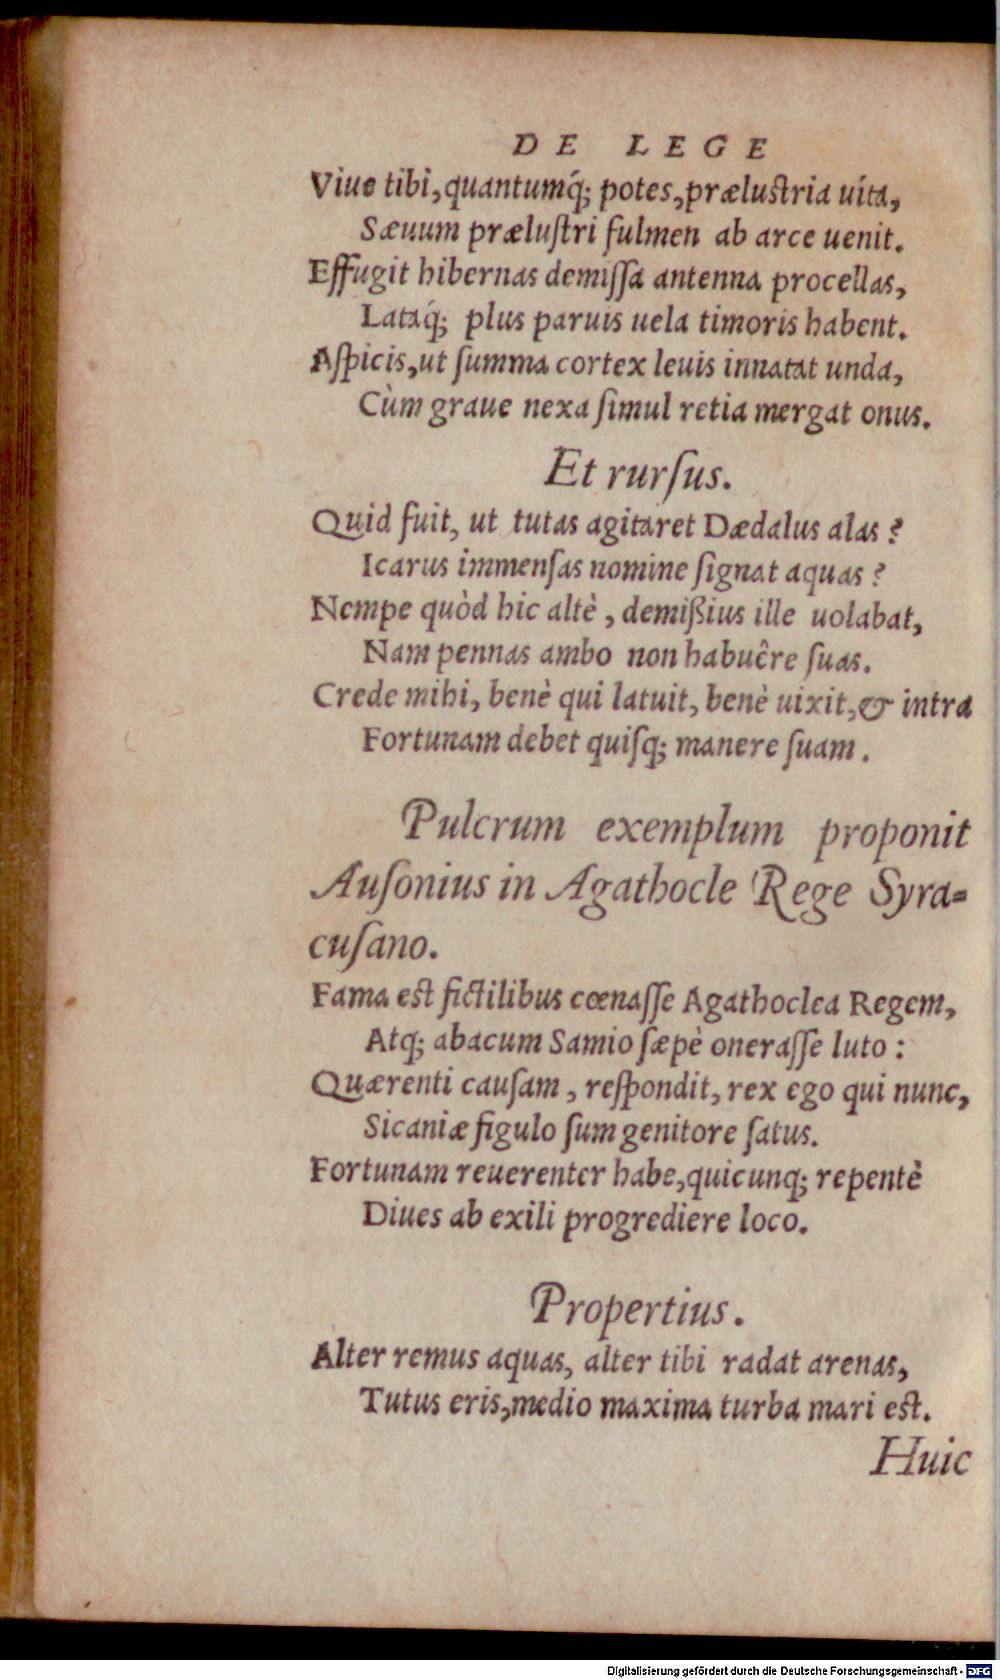 DE LEGE
Viue tibi, quantumq́; potes, prælustria uita,
Sæuum prælustri fulmen ab arce uenit.
Effugit hibernas demissa antenna procellas,
Lataq́; plus paruis uela timoris habent.
Aspicis, ut summa cortex leuis innatat unda,
Cùm graue nexa simul retia mergat onus.
Et rursus.
Quid fuit, ut tutas agitaret Dædalus alas?
Icarus immensas nomine signat aquas?
Nempe quòd hic altè, demißius ille uolabat,
Nam pennas ambo non habuêre suas.
Crede mihi, benè qui latuit, benè uixit, & intra
Fortunam debet quisq; manere suam.
Pulcrum exemplum proponit
Ausonius in Agathocle Rege Syra-
cusano.
Fama est fictilibus cœnasse Agathoclea Regem,
Atq; abacum Samio sæpè onerasse luto:
Quærenti causam, respondit, rex ego qui nunc,
Sicaniæ figulo sum genitore satus.
Fortunam reuerenter habe, quicunq; repentè
Diues ab exili progrediere loco.
Propertius.
Alter remus aquas, alter tibi radat arenas,
Tutus eris, medio maxima turba mari est.
Huic
Digitalisierung gefördert durch die Deutsche Forschungsgemeinschaft - DFG